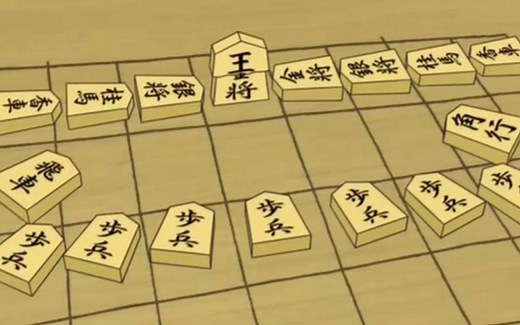 香車
桂馬
銀将
王将
金将
銀将
桂馬
香車
飛車
角行
歩兵
歩兵
歩兵
歩兵
歩兵
歩兵
歩